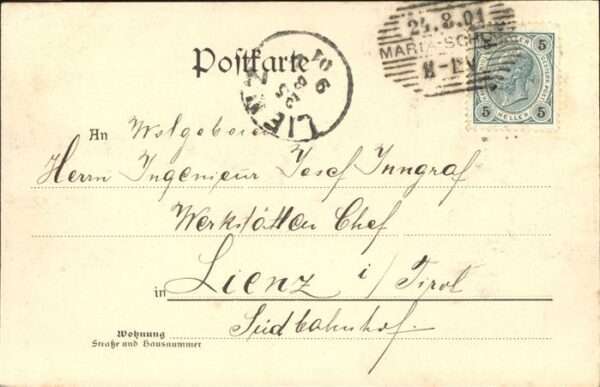 24.8.01
MARIA-SCH
Postkarte
LIENZ
25 8 01
5 5
HELLER
5 5
An Wolgeboren
Herrn Ingenieur Josef Inngraf
Werkstätten Chef
in Lienz i/Tirol
Südbahnhof.
Wohnung
Straße und Hausnummer